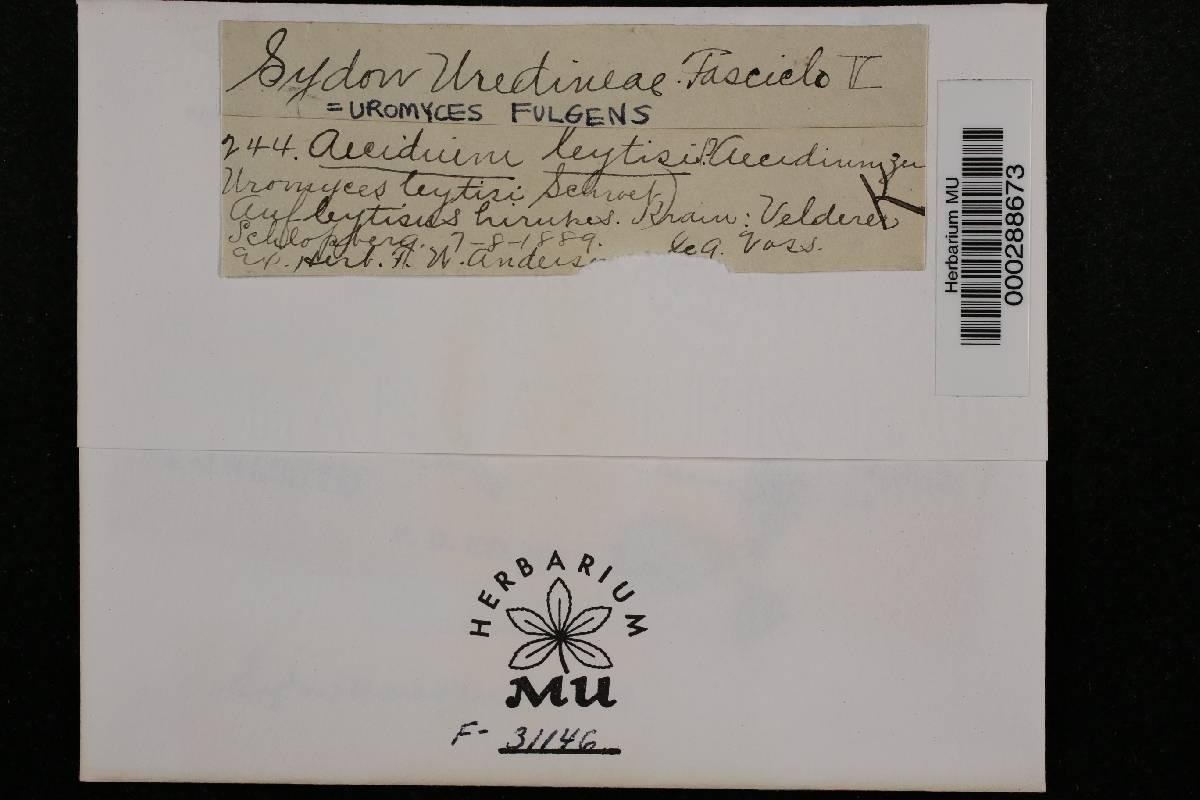 Sydow Uredineae. Fasciclo V
= UROMYCES FULGENS
244. Aecidium leytisi S. (Aecidium zu
Uromyces leytisi Schroet)
Auf leytisus hirukes. Krain: Veldeser
Schlopberg. 7-8-1889. leg. Voss.
Ex. Herb. F. W. Anders
K
Herbarium MU
000288673
HERBARIUM
MU
F- 31146